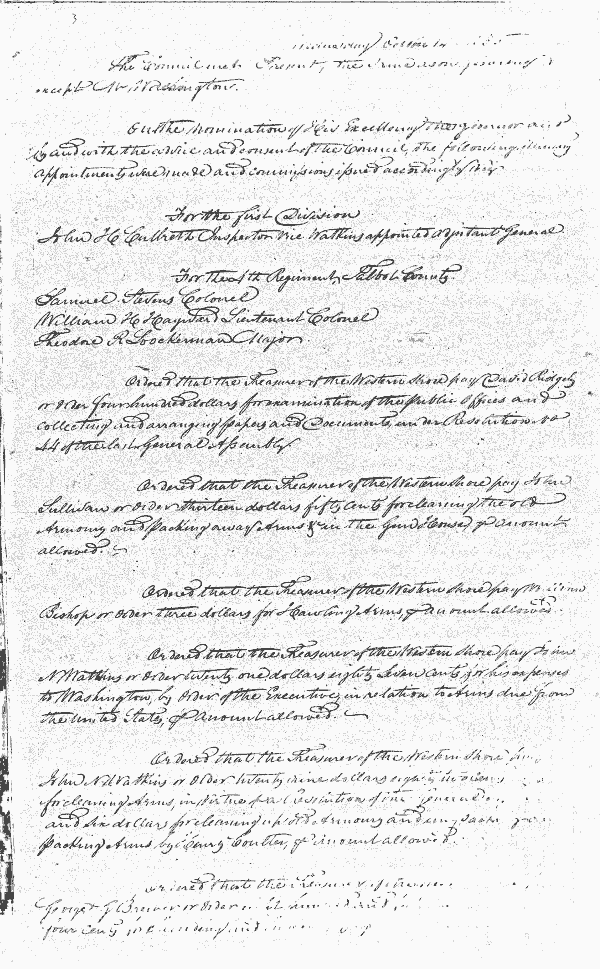 The Council met Present, the same as on
except Mr. Washington.
On the Nomination of His Excellency the governor and
by and with the advice and consent of the Council, the following
appointments were made and commissions issued accordingly
For the first Division
John H Culbreth Inspector vice Watkins appointed adjutant General
For the 4th Regiment, Talbot County.
Samuel Stevens Colonel
William H Hayward Lieutenant Colonel
Theodore R Loockerman Major
Ordered that the Treasurer of the Western Shore pay David Ridgely
or order four hundred dollars for examination of the Public Offices and
collecting and arranging papers and Documents, under Resolution No
44 of the last General Assembly.
Ordered that the Treasurer of the Western Shore pay John
Sullivan or order thirteen dollars fifty cents for cleaning the old
Armoury and packing away Arms &c in the Gun House, amount
allowed.
Ordered that the Treasurer of the Western Shore pay William
Bishop or order three dollars for Hawling Arms, amount allowed.
Ordered that the Treasurer of the Western Shore pay John
N Watkins or order twenty one dollars eighty seven cents for his expenses
to Washington, by order of the Executive, in relation to Arms due from
the United States, amount allowed.
Ordered that the Treasurer of the Western Shore
John N Watkins or order twenty nine dollars eighty
for cleaning Arms, in virtue of a Resolution of the General
and six dollars for cleaning up Old Armoury and
packing Arms, by Henry Coulter, amount allowed.
Ordered that the Treasurer
George G Brewer or order
four cents